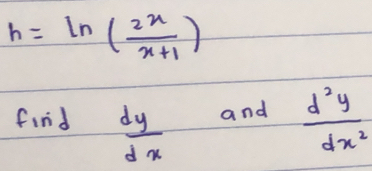 h = ln ( 2x / x+1 )
find dy/dx and d²y/dx²